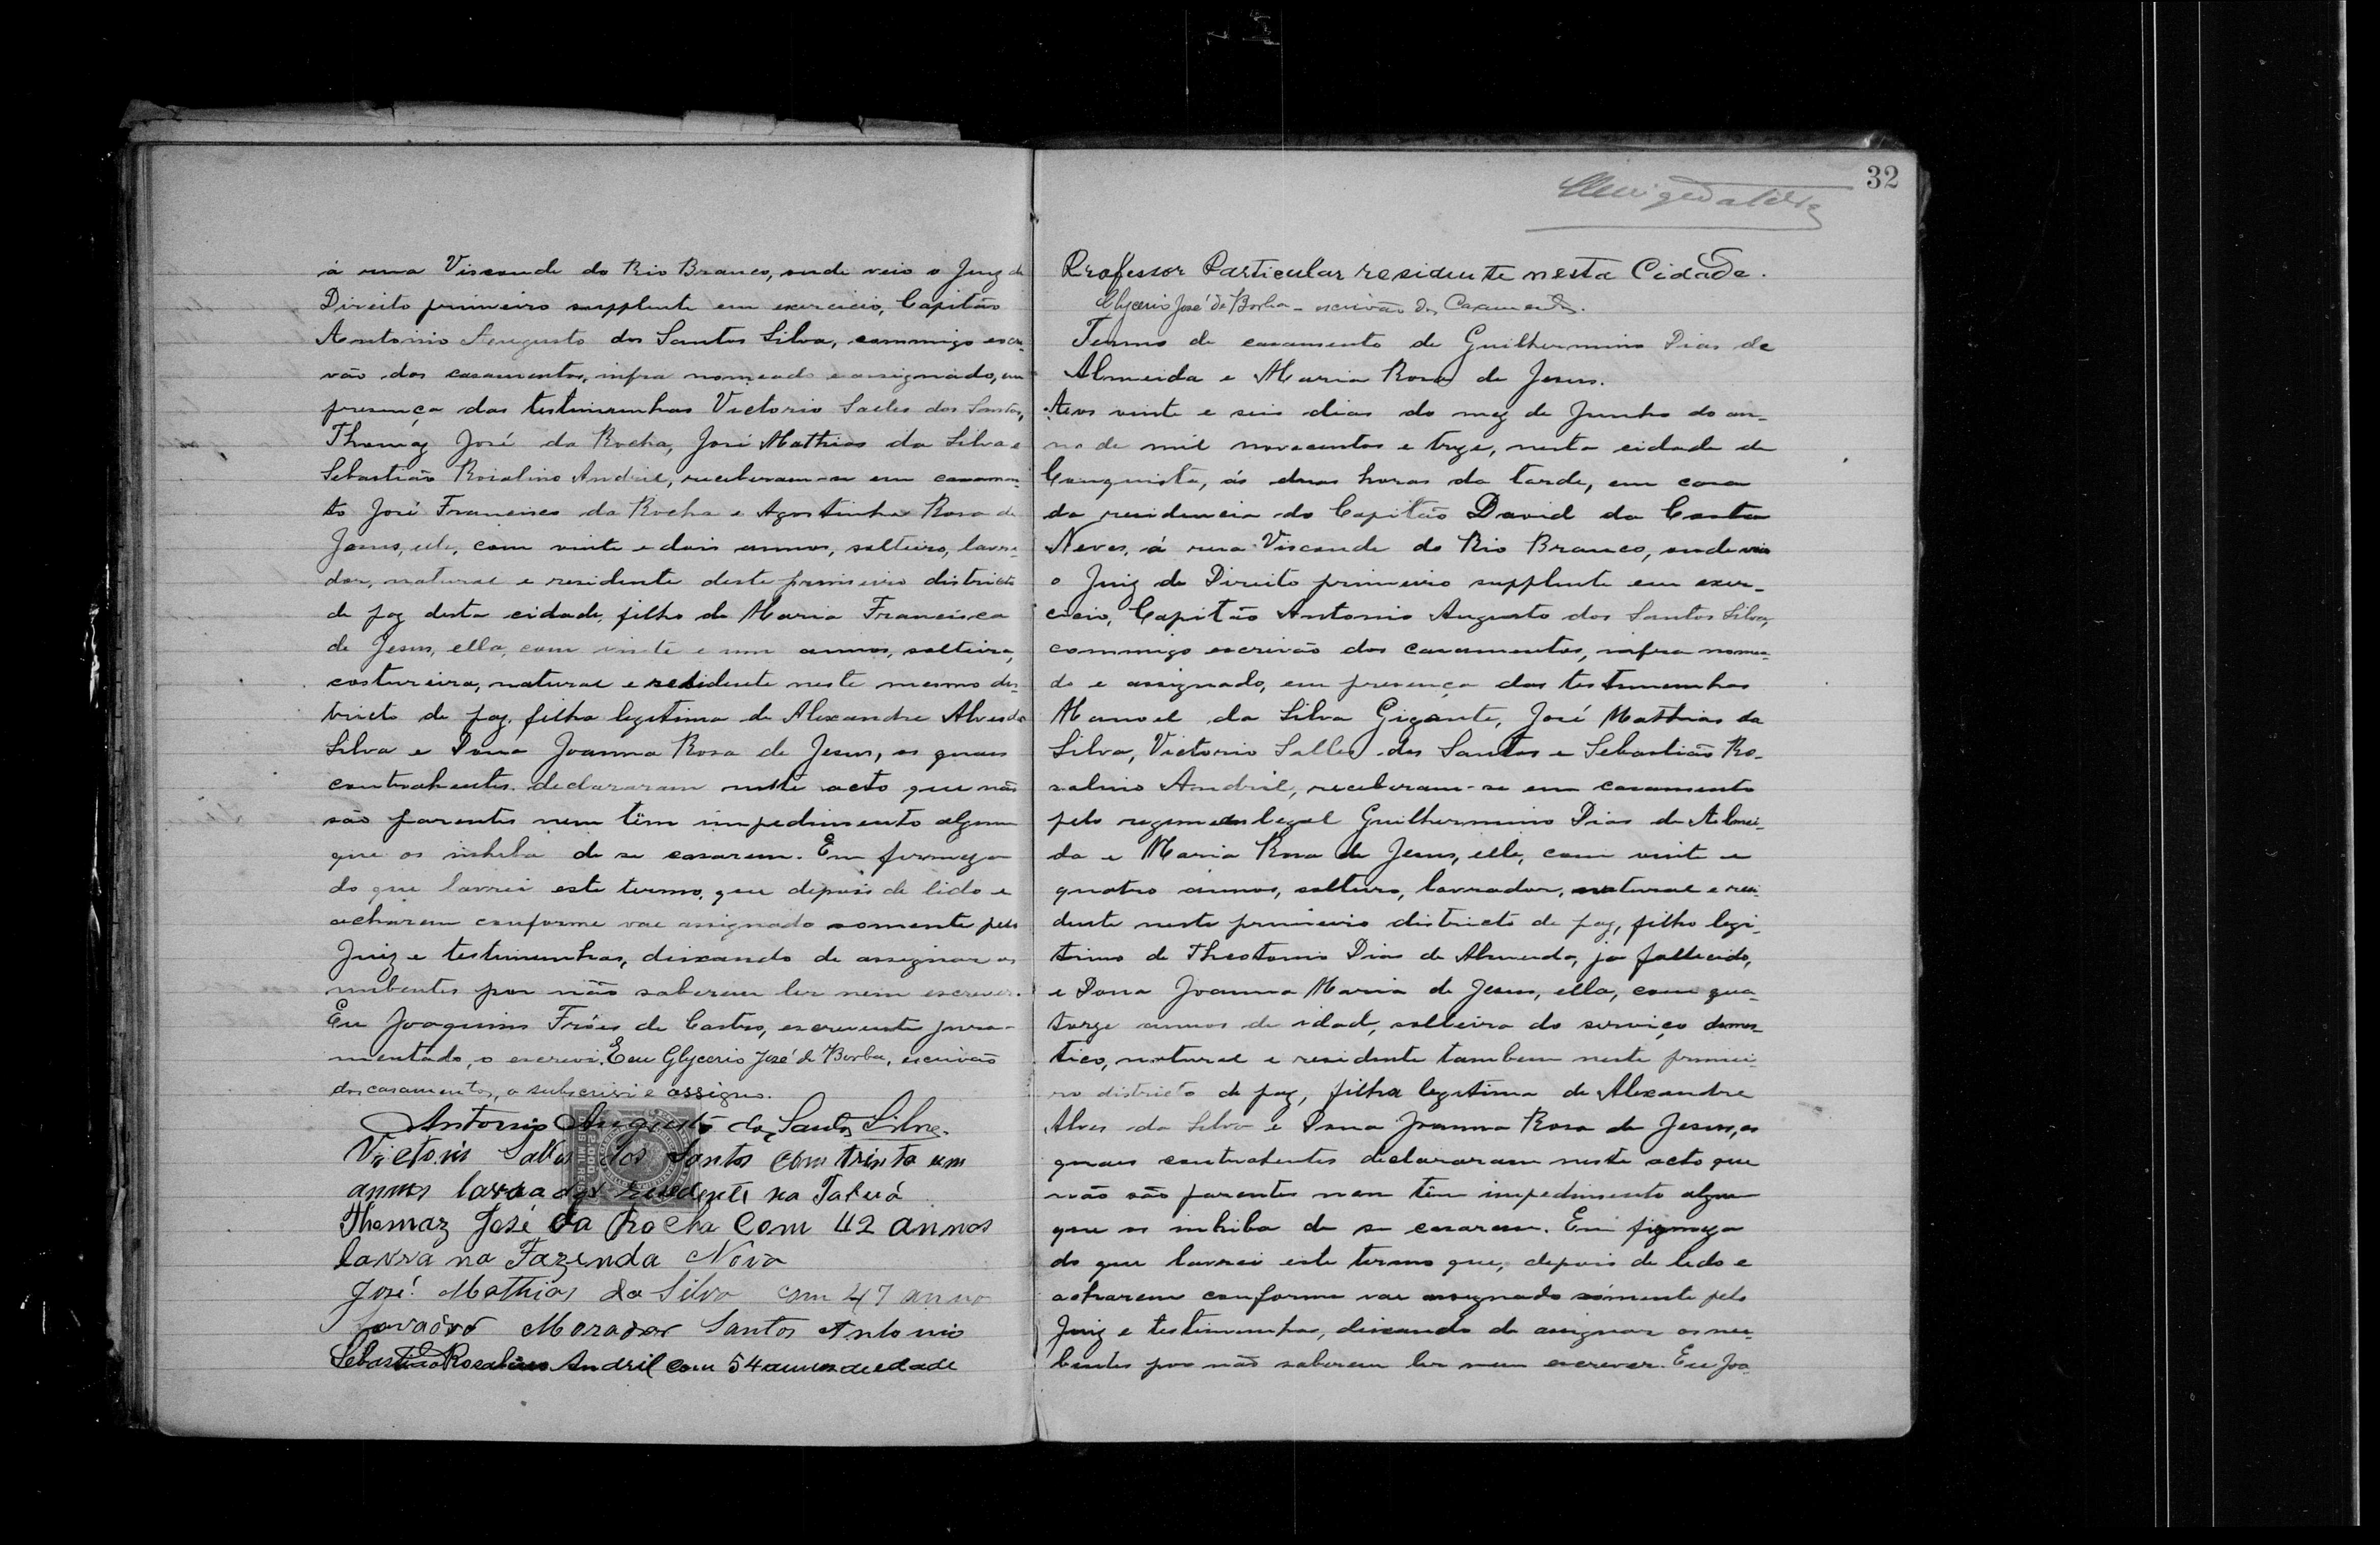 á rua Visconde do Rio Branco, onde veio o Juiz de
Direito primeiro supplente em exercicio, Capitão
Antonio Augusto dos Santos Silva, commigo escri-
vão dos casamentos, infra nomeado e assignado, em
presença das testimunhas Victorio Salles dos Santos,
Thomáz José da Rocha, José Mathias da Silva e
Sebastião Rosalino Andril, receberam-se em casamen-
to José Francisco da Rocha e Agostinha Rosa de
Jesus, elle, com vinte e dois annos, solteiro, lavra-
dor, natural e residente deste primeiro districto
de paz desta cidade, filho de Maria Francisca
de Jesus, ella, com vinte e um annos, solteira,
costureira, natural e residente neste mesmo dis-
tricto de paz, filha legitima de Alexandre Alves da
Silva e Dona Joanna Rosa de Jesus, os quaes
contrahentes declararam neste acto que não
são parentes nem têm impedimento algum
que os inhiba de se casarem. Em firmeza
do que lavrei este termo, que depois de lido e
acharem conforme vae assignado somente pelo
Juiz e testimunhas, deixando de assignar os
nubentes por não saberem ler nem escrever.
Eu Joaquim Fróes de Castro, escrevente jura-
mentado, o escrevi. E eu Glycerio José de Borba, escrivão
dos casamentos, o subscrevi e assigno.
Antonio Augusto dos Santos Silva.
Victorio Salles dos Santos com trinta um
annos lavrador residente na
Thomaz José da Rocha Com 42 annos
lavra na Fazenda Nova
José Mathias da Silva com 47 anno
Morador Santos Antonio
Sebastião Rosalino Andril com 54 annos de edade
32
Professor Particular residente nesta Cidade.
Glycerio José de Borba - escrivão dos Casamentos.
Termo de casamento de Guilhermino Dias de
Almeida e Maria Rosa de Jesus.
Aos vinte e seis dias do mez de Junho do an-
no de mil novecentos e treze, nesta cidade de
Conquista, ás duas horas da tarde, em casa
da residencia do Capitão David da Costa
Neves, á rua Visconde do Rio Branco, onde veio
o Juiz de Direito primeiro supplente em exer-
cicio, Capitão Antonio Augusto dos Santos Silva,
commigo escrivão dos casamentos, infra nomea-
do e assignado, em presença das testimunhas
Manoel da Silva Gigante, José Mathias da
Silva, Victorio Salles dos Santos e Sebastião Ro-
salino Andril, receberam-se em casamento
pelo regimen legal Guilhermino Dias de Almei-
da e Maria Rosa de Jesus, elle, com vinte e
quatro annos, solteiro, lavrador, natural e resi-
dente neste primeiro districto de paz, filho legi-
timo de Theotonio Dias de Almeida, já fallecido,
e Dona Joanna Maria de Jesus, ella, com qua-
torze annos de idade, solteira do serviço domes-
tico, natural e residente tambem neste primei-
ro districto de paz, filha legitima de Alexandre
Alves da Silva e Dona Joanna Rosa de Jesus, os
quaes contrahentes declararam neste acto que
não são parentes nem têm impedimento algum
que os inhiba de se casarem. Em firmeza
do que lavrei este termo que, depois de lido e
acharem conforme vae assignado sómente pelo
Juiz e testimunhas, deixando de assignar os nu-
bentes por não saberem ler nem escrever. Eu Joa-